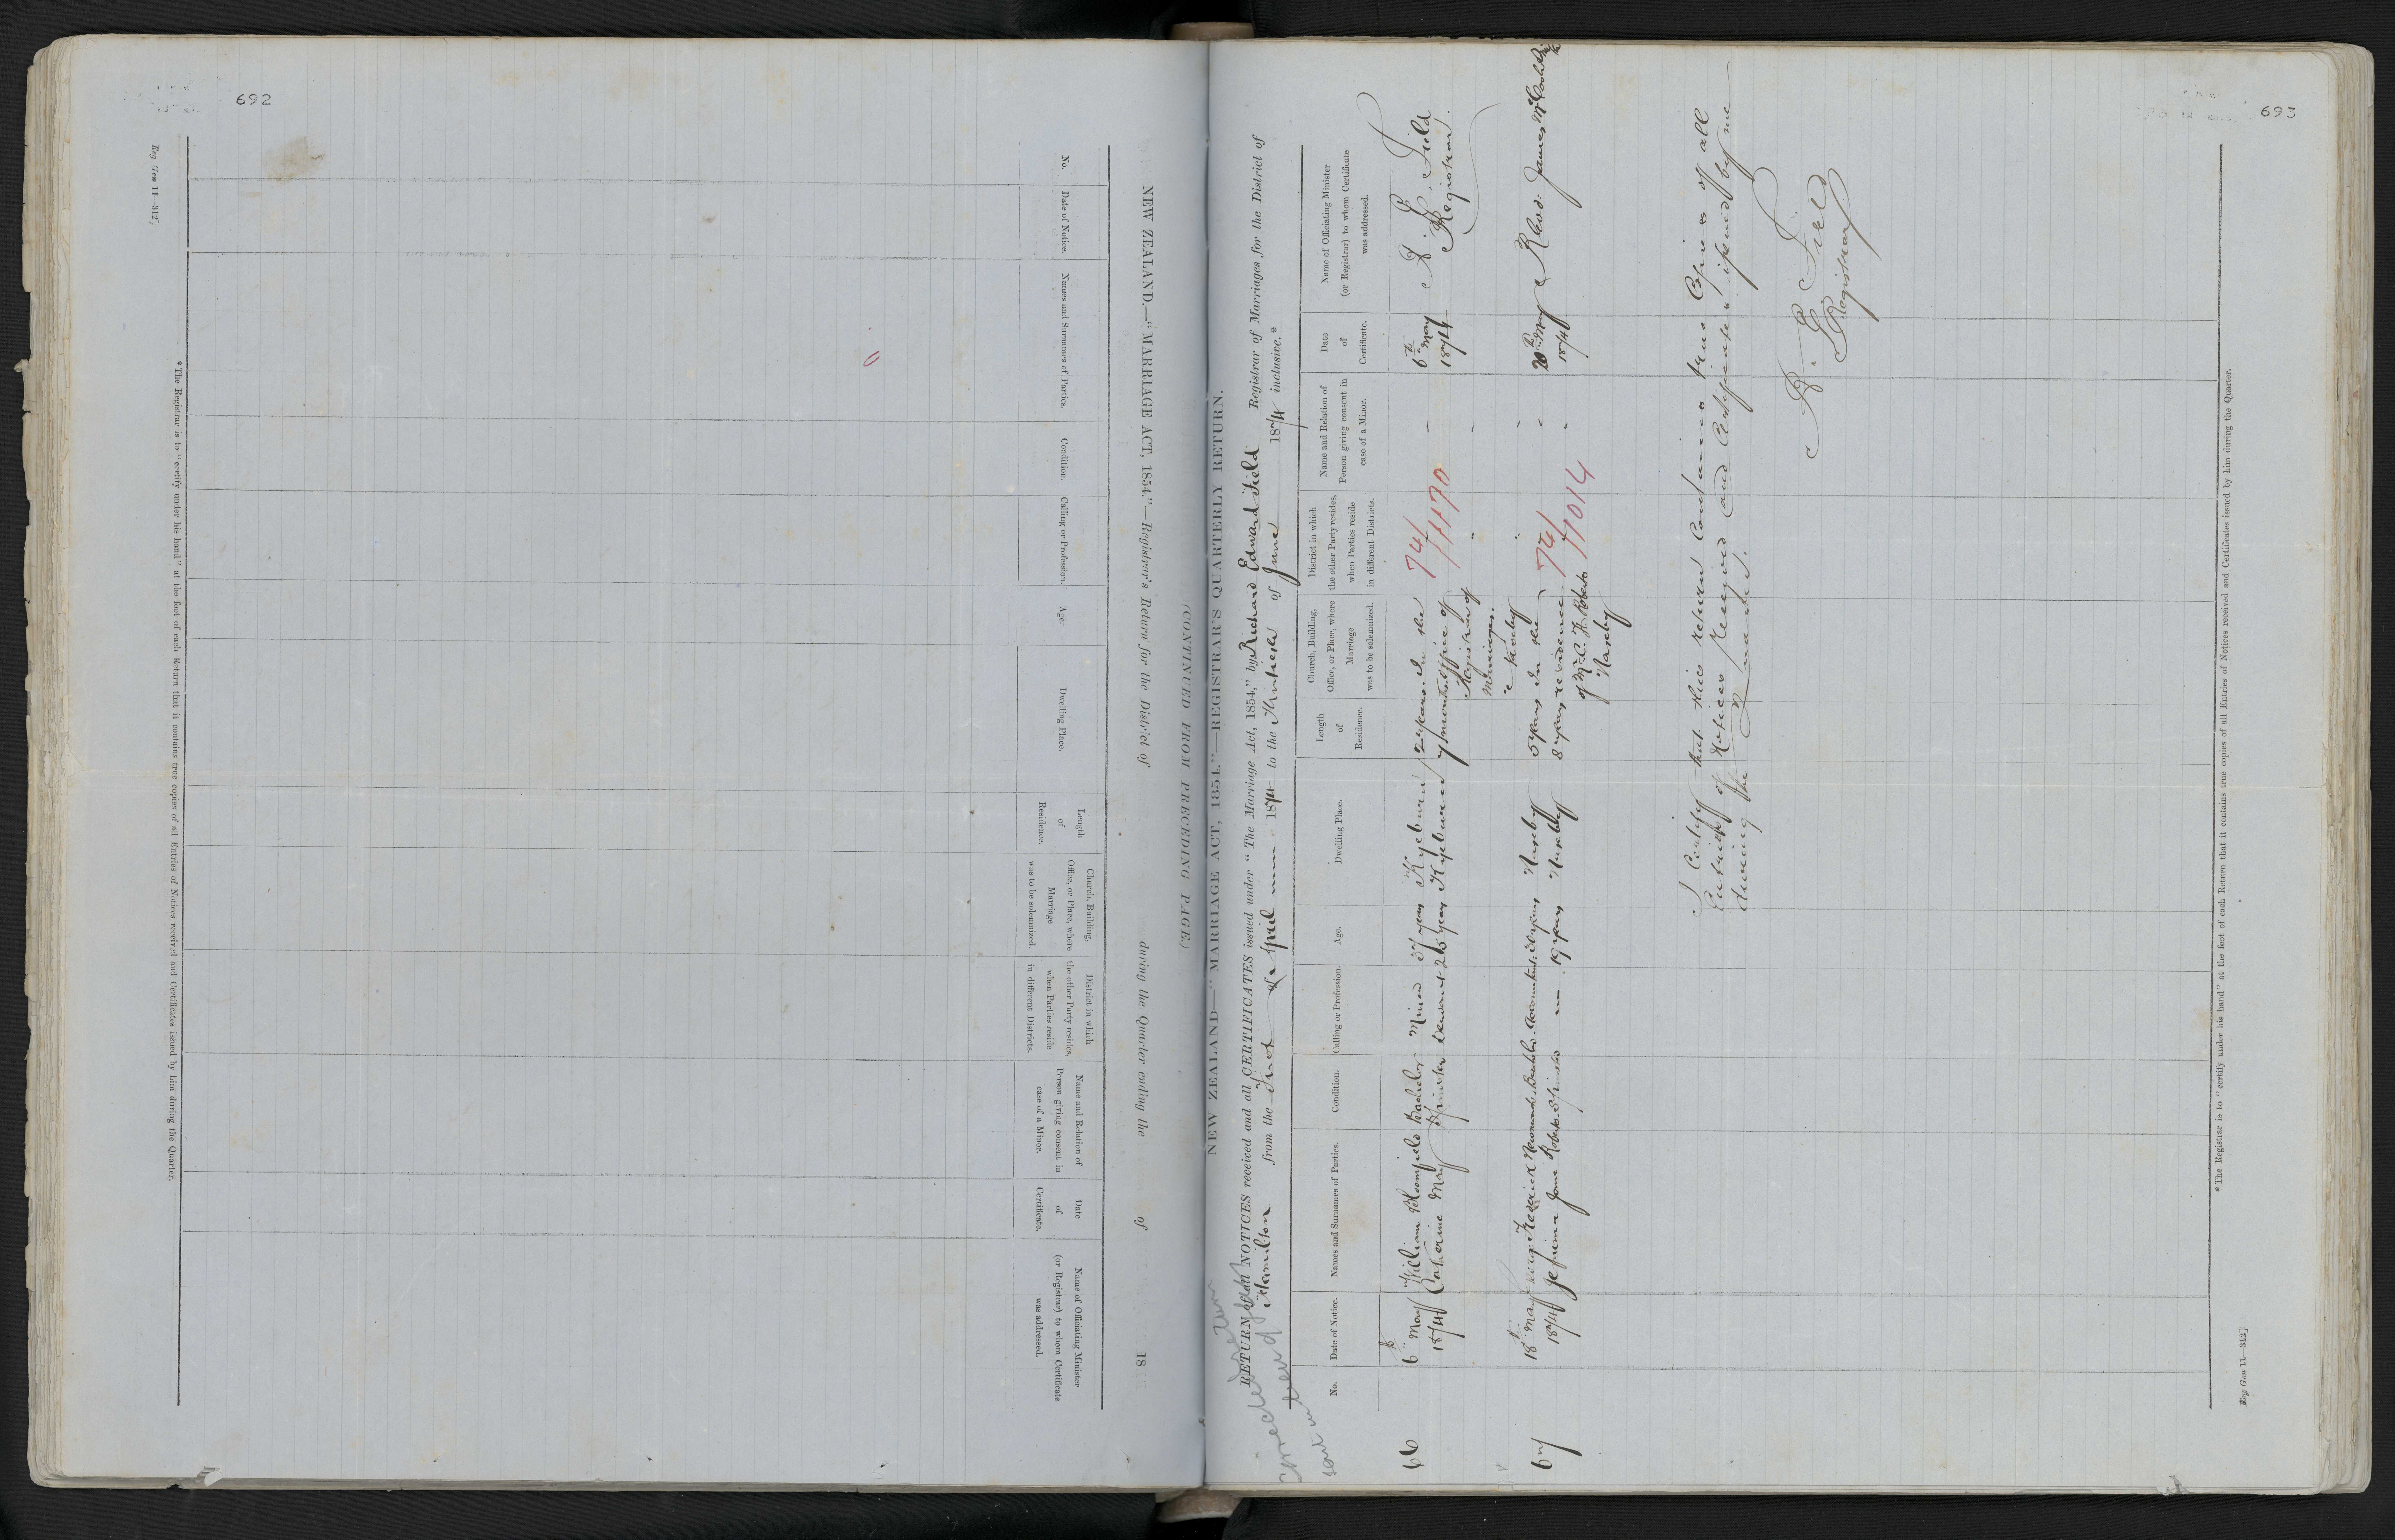 692
Reg Gen 11—312]
NEW ZEALAND.—"MARRIAGE ACT, 1854."—Registrar's Return for the District of during the Quarter ending the of 18
(CONTINUED FROM PRECEDING PAGE.)
No.
Date of Notice.
Names and Surnames of Parties.
Condition.
Calling or Profession.
Age.
Dwelling Place.
Length
of
Residence.
Church, Building,
Office, or Place, where
Marriage
was to be solemnized.
District in which
the other Party resides,
when Parties reside
in different Districts.
Name and Relation of
Person giving consent in
case of a Minor.
Date
of
Certificate.
Name of Officiating Minister
(or Registrar) to whom Certificate
was addressed.
* The Registrar is to "certify under his hand" at the foot of each Return that it contains true copies of all Entries of Notices received and Certificates issued by him during the Quarter.
693
NEW ZEALAND—"MARRIAGE ACT, 1854."—REGISTRAR'S QUARTERLY RETURN.
corrected return
sent in
RETURN of all NOTICES received and all CERTIFICATES issued under "The Marriage Act, 1854," by Richard Edward Field Registrar of Marriages for the District of
Hamilton from the First of April 1874 to the Thirtieth of June 1874 inclusive.*
No.
Date of Notice.
Names and Surnames of Parties.
Condition.
Calling or Profession.
Age.
Dwelling Place.
Length
of
Residence.
Church, Building,
Office, or Place, where
Marriage
was to be solemnized.
District in which
the other Party resides,
when Parties reside
in different Districts.
Name and Relation of
Person giving consent in
case of a Minor.
Date
of
Certificate.
Name of Officiating Minister
(or Registrar) to whom Certificate
was addressed.
66
6th May
1874
William Bloomfield Bachelor Miner 37 years Kyeburn 2 years
Catherine May Spinster Servant 26 years Kyeburn 7 months
In the
Office of
Registrar of
Marriages
Naseby
74/
6th May
1874
R. E. Field
Registrar
67
18th May
1874
Frederick Bachelor Accountant 30 years Naseby 5 years
Jemima Jane Roberts Spinster — 19 years Naseby 8 years
In the
residence
of Mr C. H. Roberts
Naseby
74/1014
20th May
1874
Revd. James
I Certify that this return contains true Copies of all
Entries of Notices Received and Certificates issued by me
during the Quarter.
R. E. Field
Registrar
* The Registrar is to "certify under his hand" at the foot of each Return that it contains true copies of all Entries of Notices received and Certificates issued by him during the Quarter.
Reg Gen 11—312]